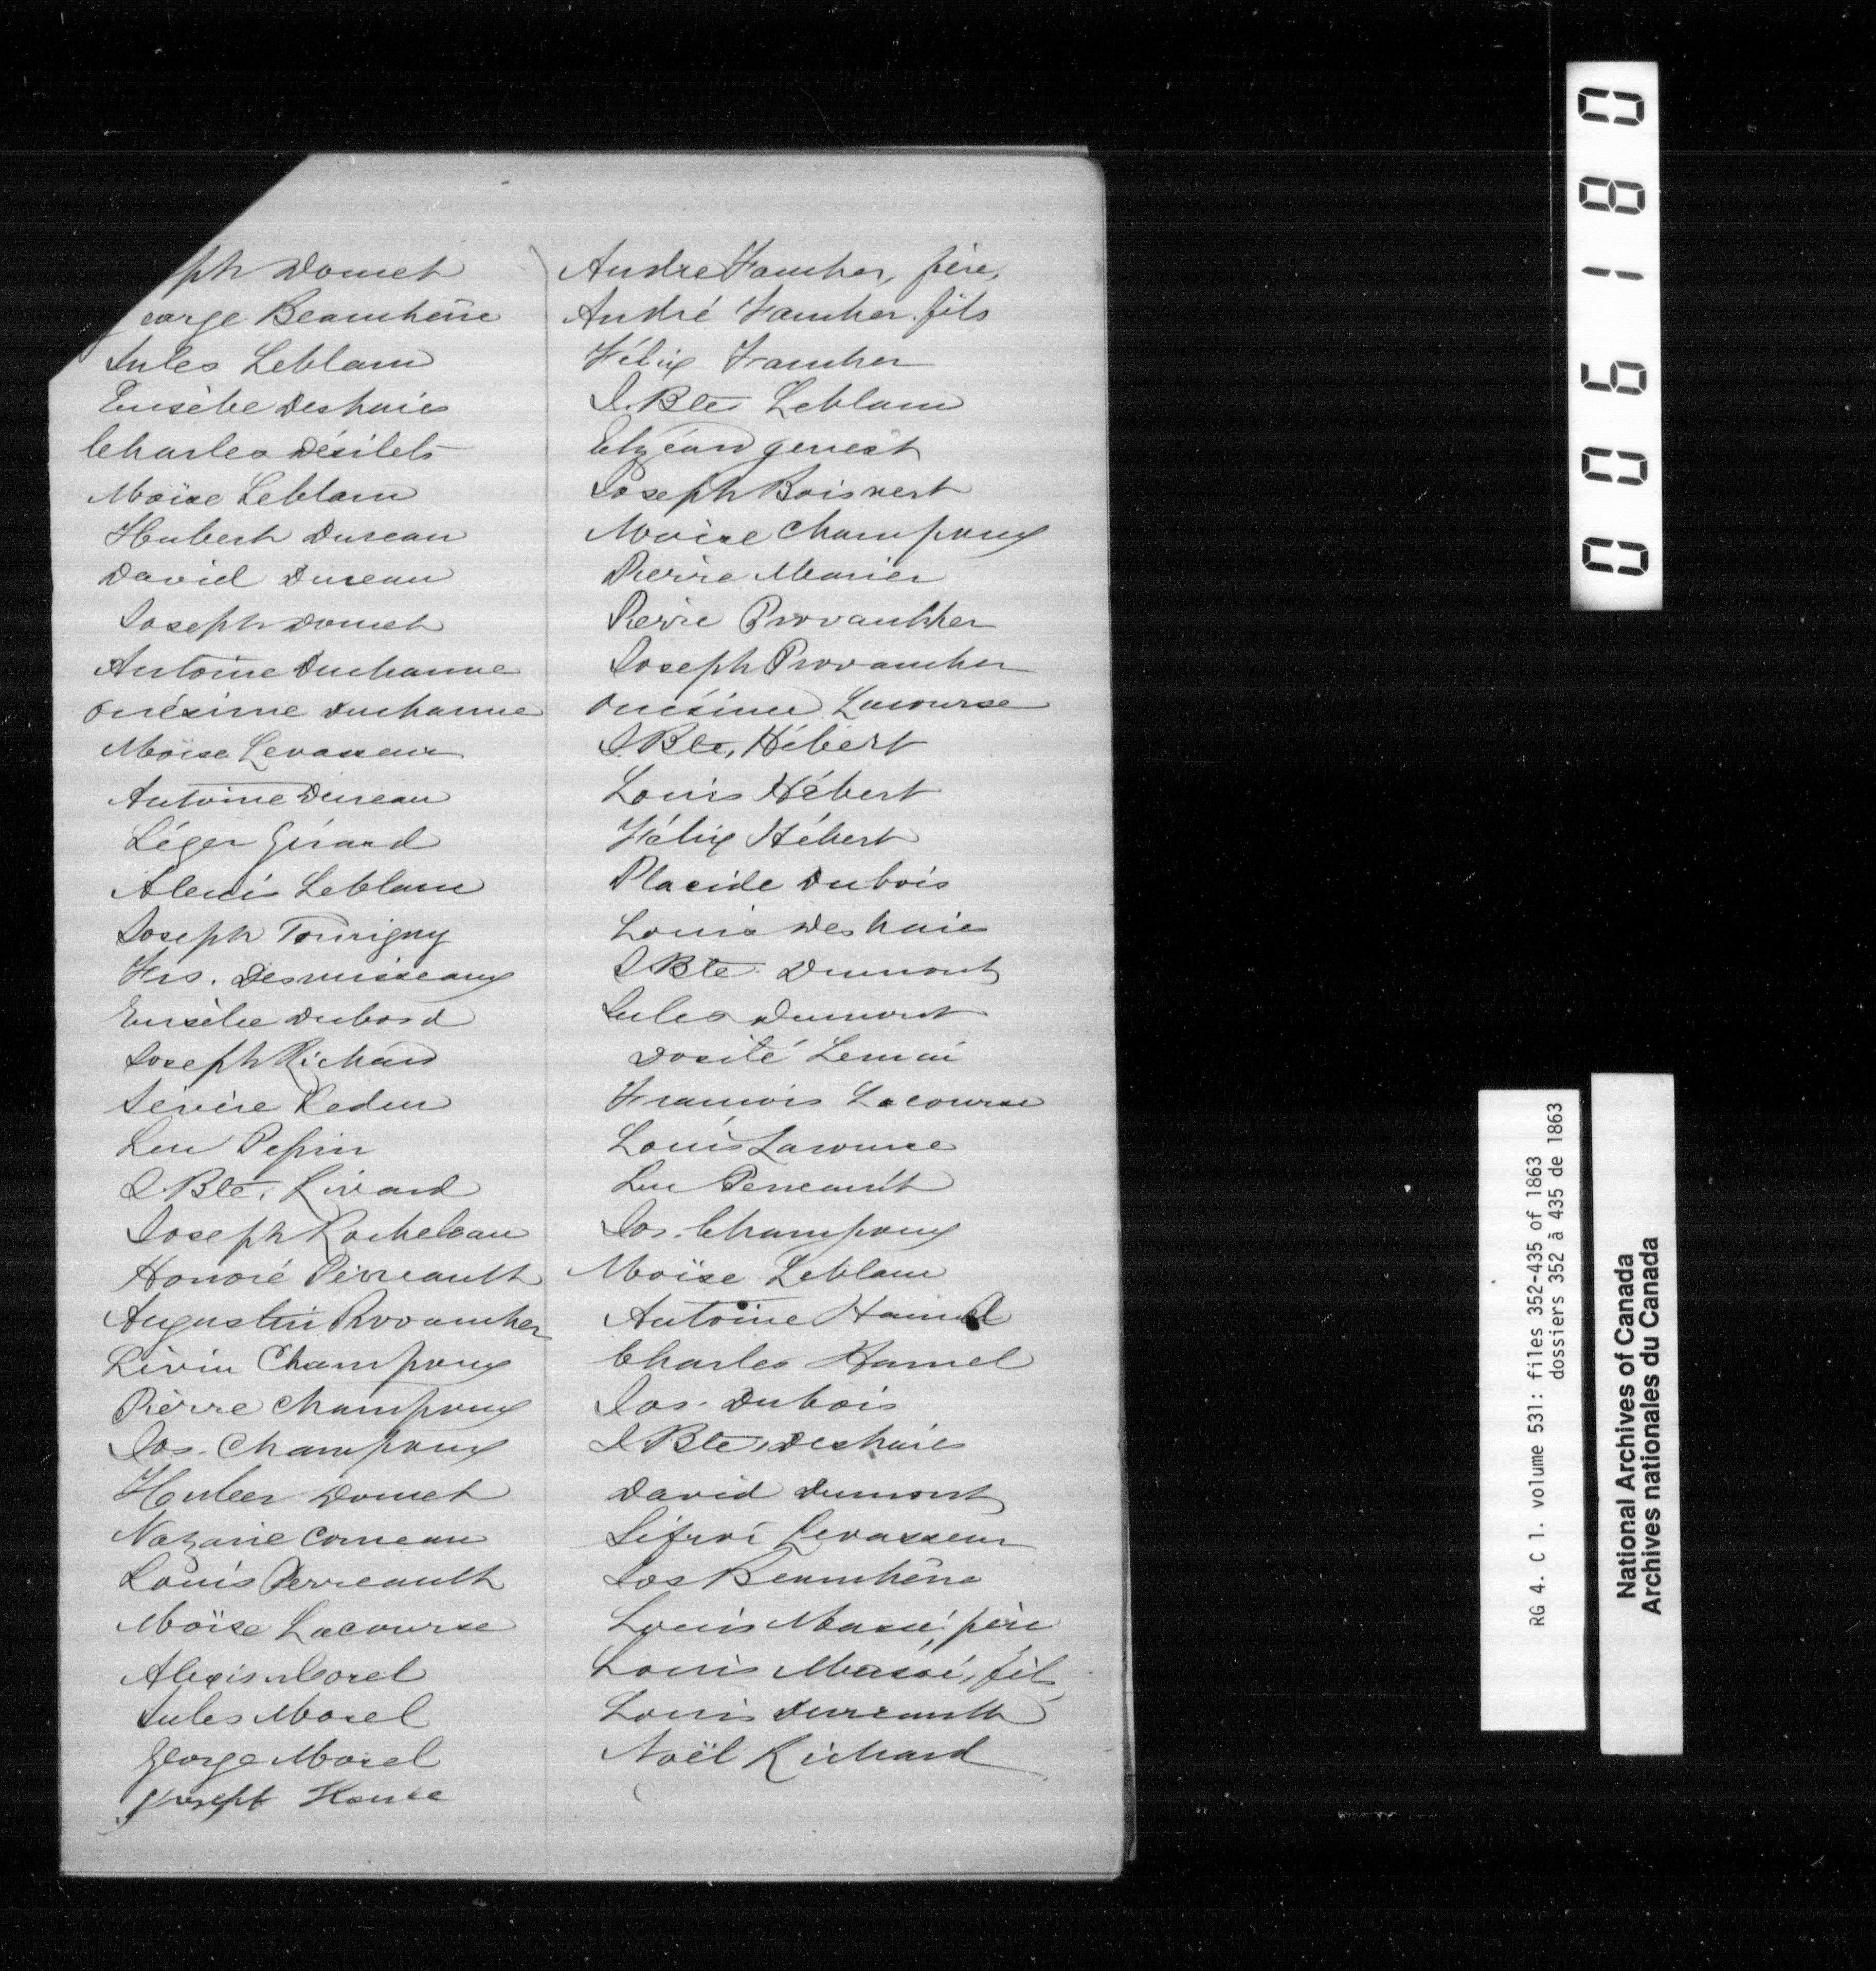 ph Domet
eorge Beauchêne
Jules Leblanc
Eusèbe Deshaies
Charles Désilets
Moïse Leblanc
Hubert Dureau
David Dureau
Joseph Domet
Antoine Ducharme
Onésime Ducharme
Moïse Levasseur
Antoine Dureau
Léger Girard
Alexis Leblanc
Joseph Tourigny
Frs. Desruisseaux
Eusèbe Dubord
Joseph Richard
Sévère
Luc Pepin
J Bte. Rivard
Joseph Rocheleau
Honoré Perreault
Augustin Provancher
Champoux
Pierre Champoux
Jos. Champoux
Domet
Nazaire Comeau
Louis Perreault
Moïse Lacourse
Alexis Morel
Jules Morel
George Morel
Joseph Houle
Andre Faucher, père,
André Faucher fils
Félix Faucher
J. Bte Leblanc
Elzéard Genest
Joseph Boisvert
Moïse Champoux
Pierre Marier
Pierre Provancher
Joseph Provancher
Onésime Lacourse
J. Bte, Hébert
Louis Hébert
Félix Hébert
Placide Dubois
Louis Deshaies
J Bte Dumont
Jules Dumont
Dosité Lemai
François Lacourse
Louis Lacourse
Luc Perreault
Jos. Champoux
Moïse Leblanc
Antoine Hamel
Charles Hamel
Jos. Dubois
J Bte, Deshaies
David Dumont
Levasseur
Jos Beauchêne
Louis Massé, père
Louis Massé, fils
Louis
Noël Richard
006180
RG 4. C 1. volume 531: files 352-435 of 1863
dossiers 352 à 435 de 1863
National Archives of Canada
Archives nationales du Canada